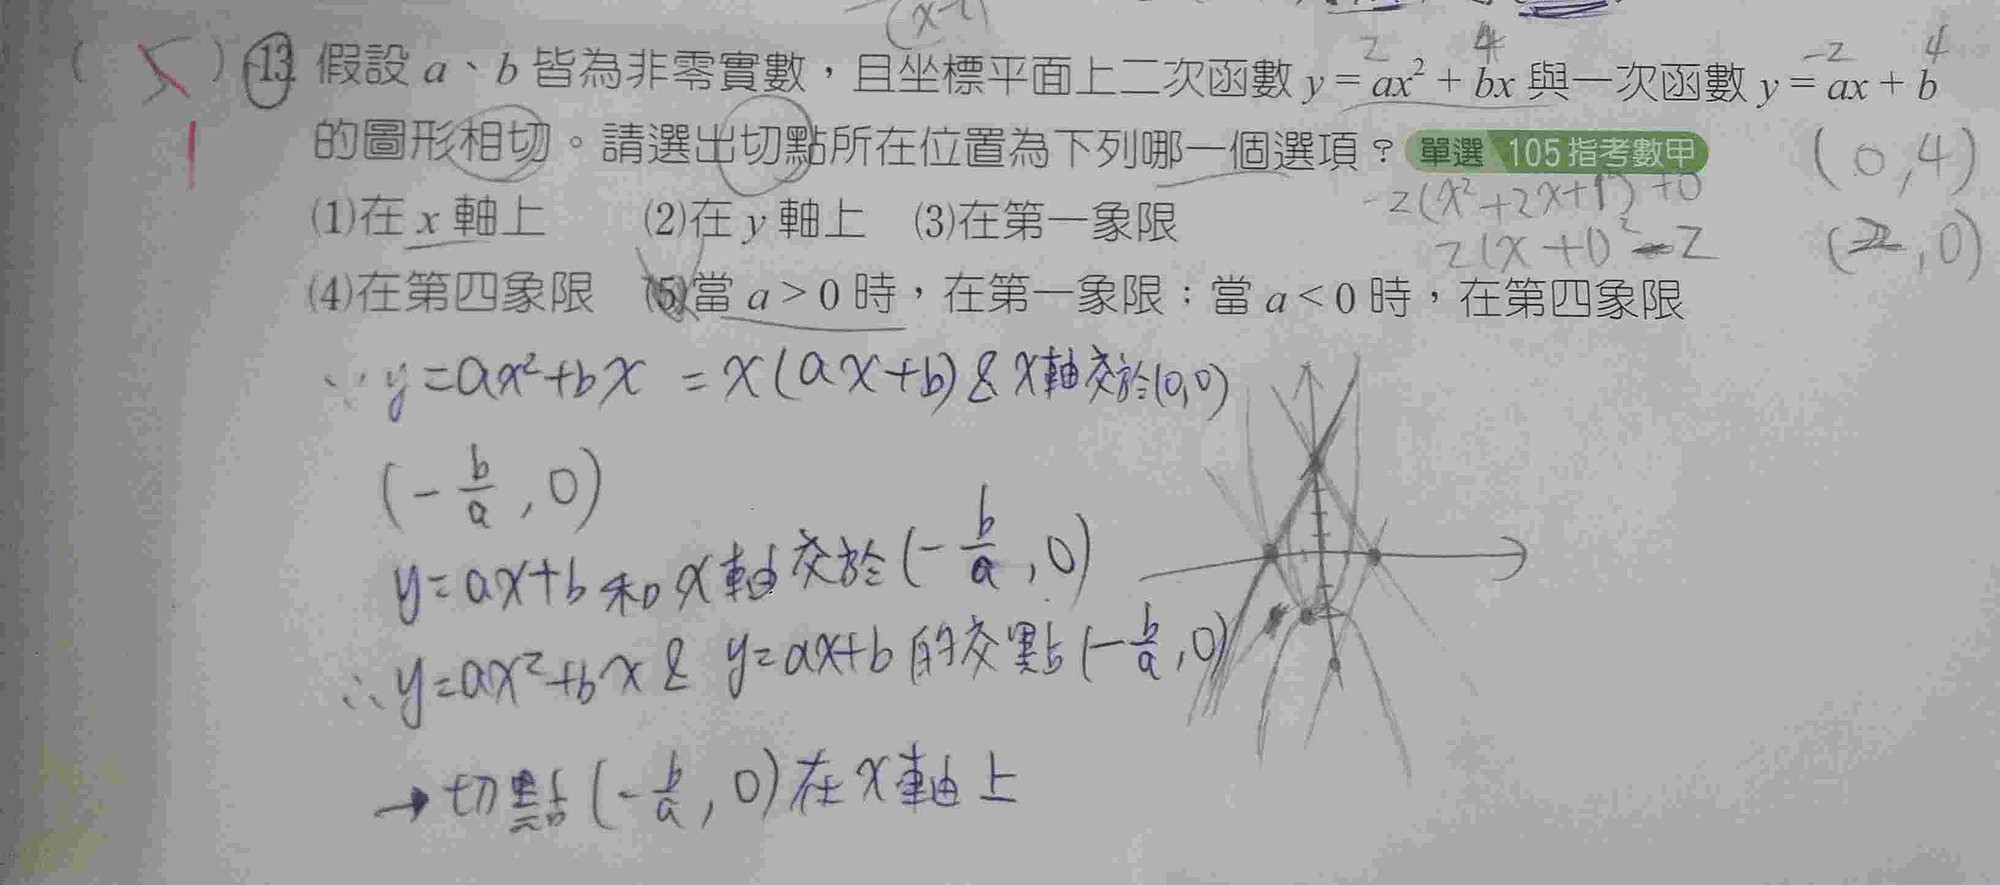 (x-1)
2 4 -2 4
( 5 ) 13 假設 a、b 皆為非零實數，且坐標平面上二次函數 y = ax² + bx 與一次函數 y = ax + b
1 的圖形相切。請選出切點所在位置為下列哪一個選項？ 單選 105 指考數甲 (0,4)
-2(x²+2x+1)+0
(1)在 x 軸上 (2)在 y 軸上 (3)在第一象限
2(x+1)²-2 (2,0)
(4)在第四象限 (5)當 a > 0 時，在第一象限；當 a < 0 時，在第四象限
∵ y=ax²+bx = x(ax+b) & x軸交於(0,0)
(-b/a, 0)
y=ax+b 和 x軸交於(-b/a, 0)
∴ y=ax²+bx & y=ax+b 的交點(-b/a, 0)
→ 切點(-b/a, 0)在 x 軸上